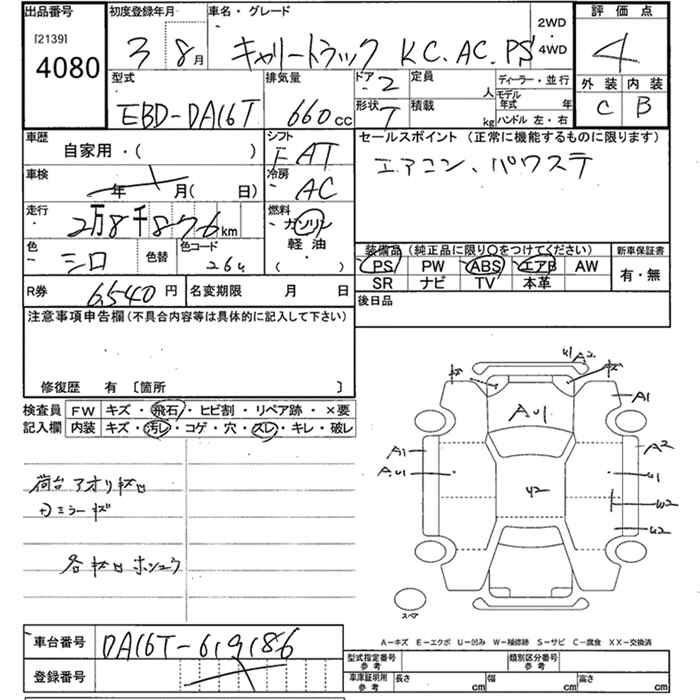 出品番号 初度登録年月 車名・グレード 2WD・4WD 評価点
[2139] 4080 3 8月 キャリートラック KC.AC.PS 4
型式 排気量 ドア 2 定員 人 ディーラー・並行 外装 内装
EBD-DA16T 660cc 形状 T 積載 kg モデル年式 年 C B
ハンドル左・右
車歴 シフト セールスポイント(正常に機能するものに限ります)
自家用・( ) FAT エアコン、パワステ
車検 年 月( 日) 冷房 AC
走行 2万8千876km 燃料 ガソリン
色 シロ 色替 色コード 26U 軽油 ( )
装備品(純正品に限り○をつけてください) 新車保証書
PS PW ABS エアB AW 有・無
SR ナビ TV 本革
R券 6540円 名変期限 月 日 後日品
注意事項申告欄(不具合内容等は具体的に記入して下さい)
修復歴 有 〔箇所 〕
検査員 FW キズ・飛石・ヒビ割・リペア跡・×要
記入欄 内装 キズ・汚レ・コゲ・穴・スレ・キレ・破レ
荷台アオリキズ凹
ミラーキズ
各キズ凹ホシュウ
U1 A2
キズ キズ
AU1 A1
A1 A2
AU1 U1
U2 W2
U2
スペア
A-キズ E-エクボ U-凹み W-補修跡 S-サビ C-腐食 XX-交換済
車台番号 DA16T-619186 型式指定番号 参考 類別区分番号 参考
登録番号 車庫証明用 参考 長さ cm 幅 cm 高さ cm